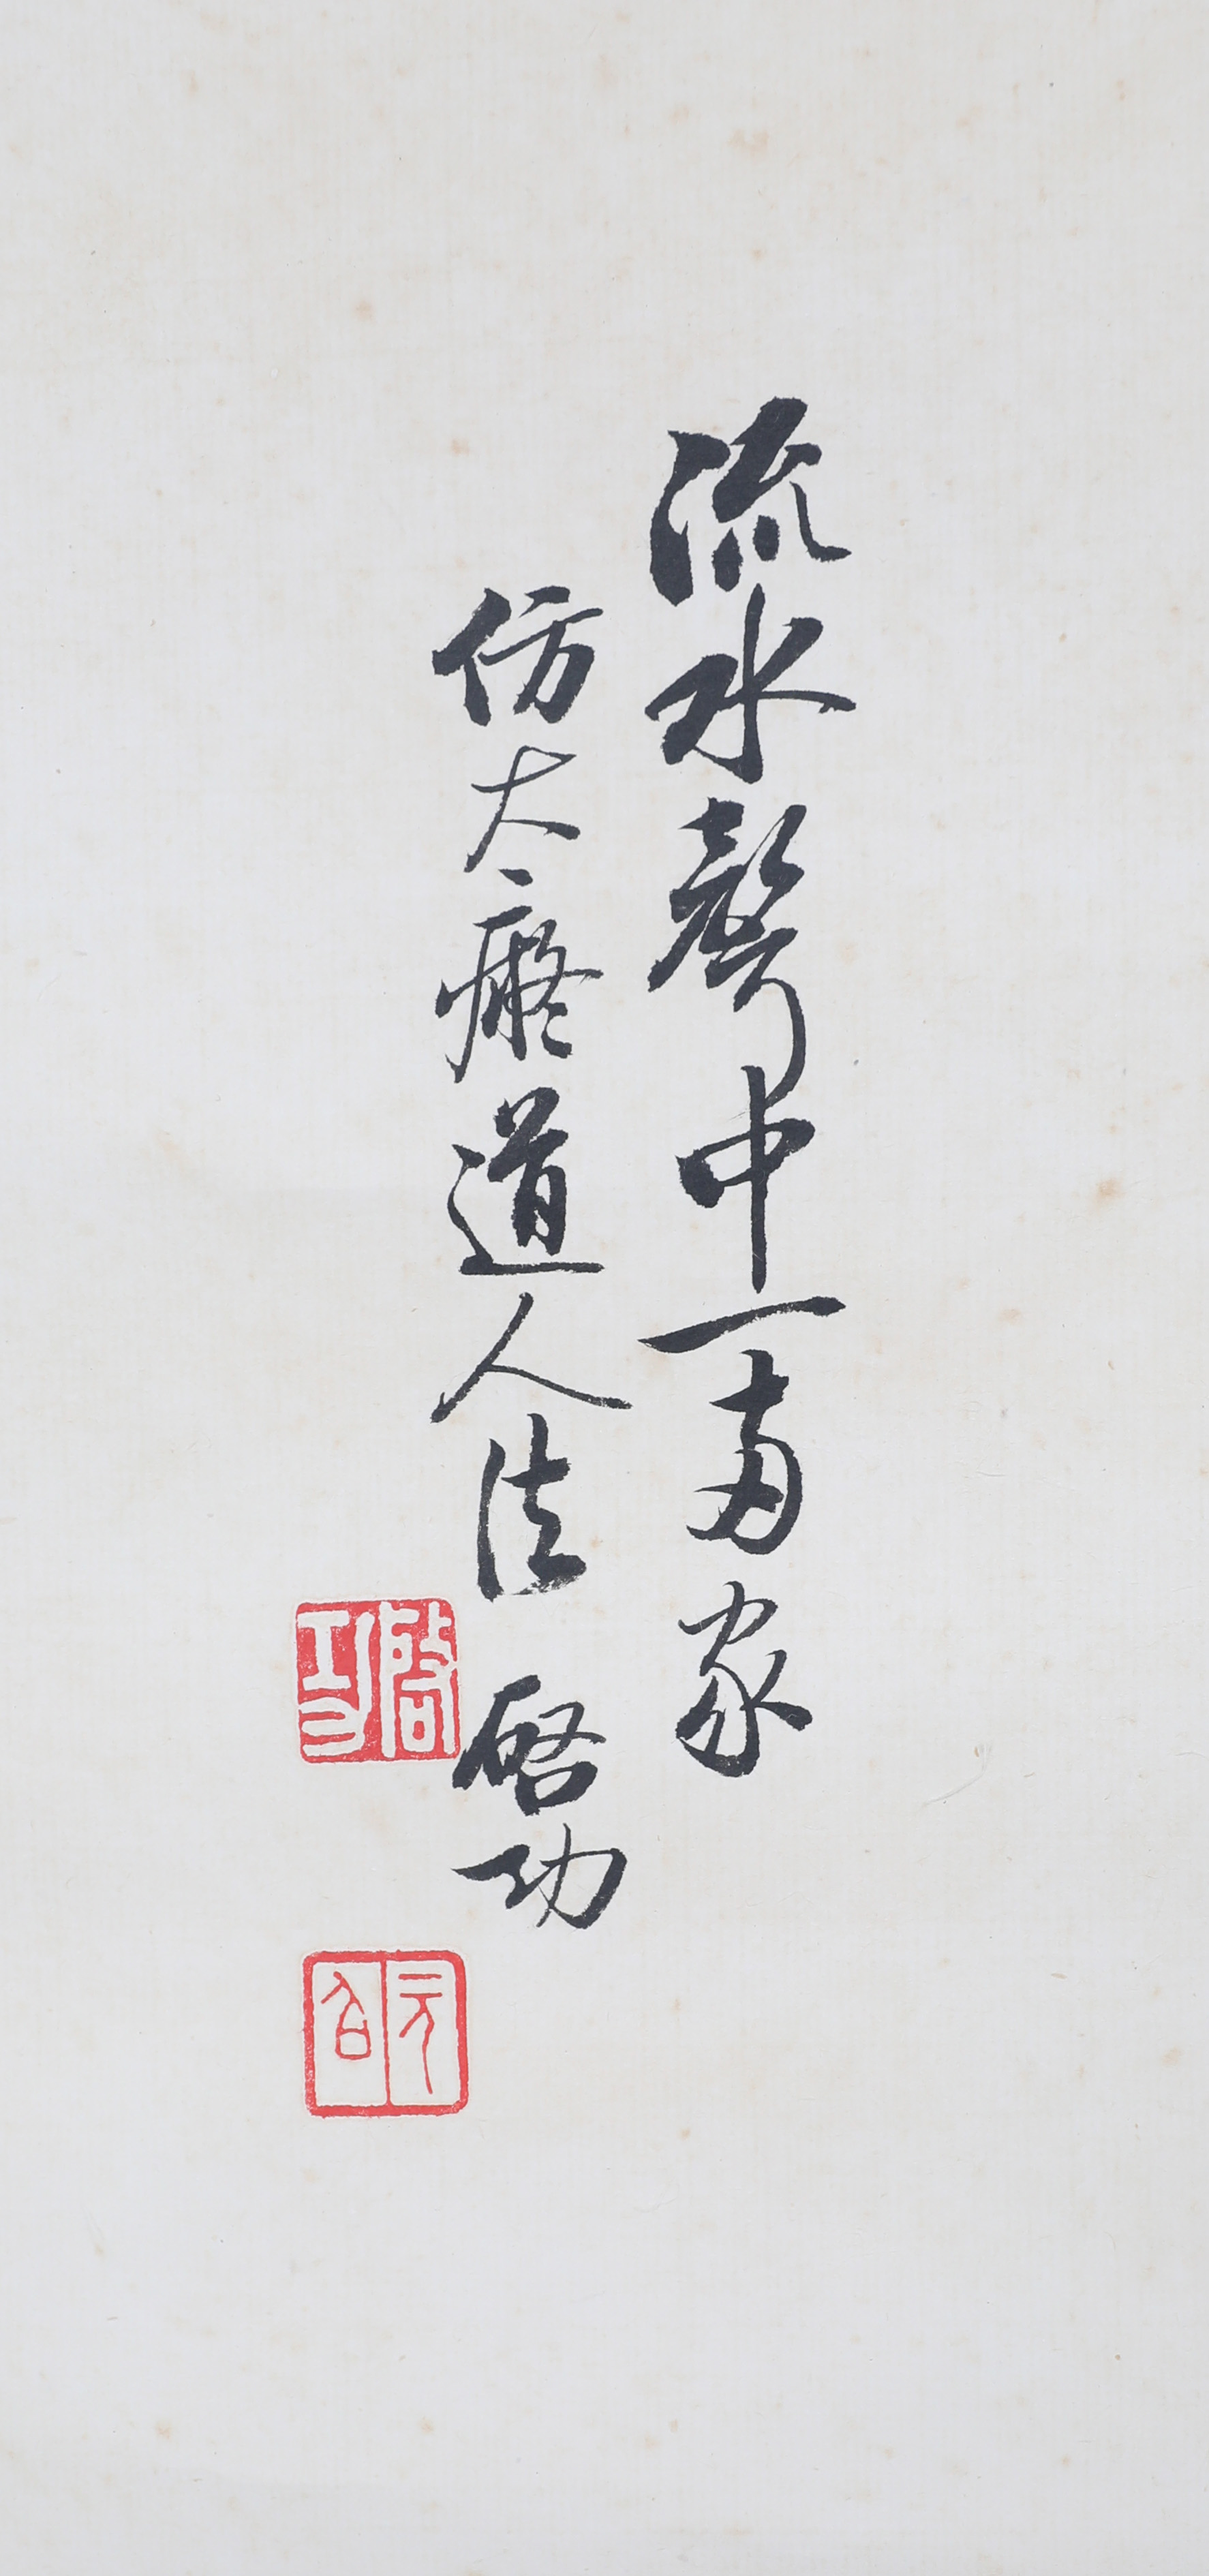 流水聲中一兩家
仿大癡道人法 啓功
啓功
元白